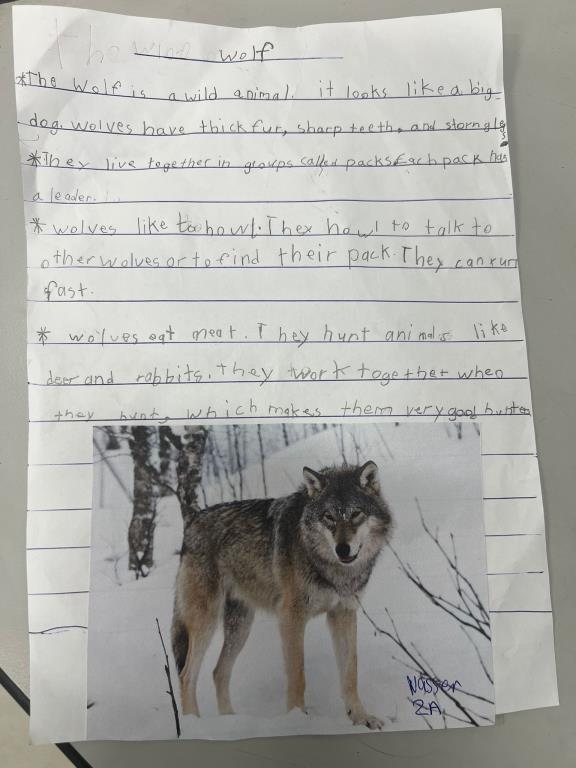 wolf
*The Wolf is a wild animal. it looks like a big
dog. wolves have thick fur, sharp teeth, and storng legs
*They live together in groups called packs. Each pack has
a leader.
* wolves like to howl. They howl to talk to
other wolves or to find their pack. They can run
fast.
* wolves eat meat. They hunt animals like
deer and rabbits. they work together when
they hunt, which makes them very good hunters
Nasser
2A